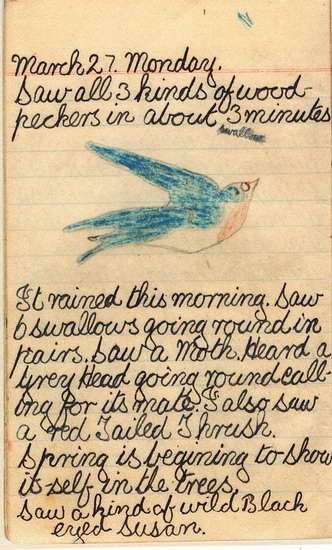 March 27. Monday.
Saw all 3 kinds of wood-
peckers in about 3 minutes
swallow
It rained this morning. Saw
6 swallows going round in
pairs. Saw a Moth. Heard a
Grey Head going round call-
ing for its mate. I also saw
a red Tailed Thrush.
Spring is begining to show
it self in the trees.
Saw a kind of wild Black
eyed Susan.